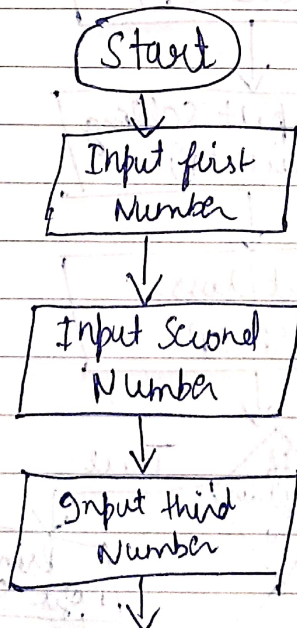 Start
Input first
Number
Input Second
Number
Input third
Number